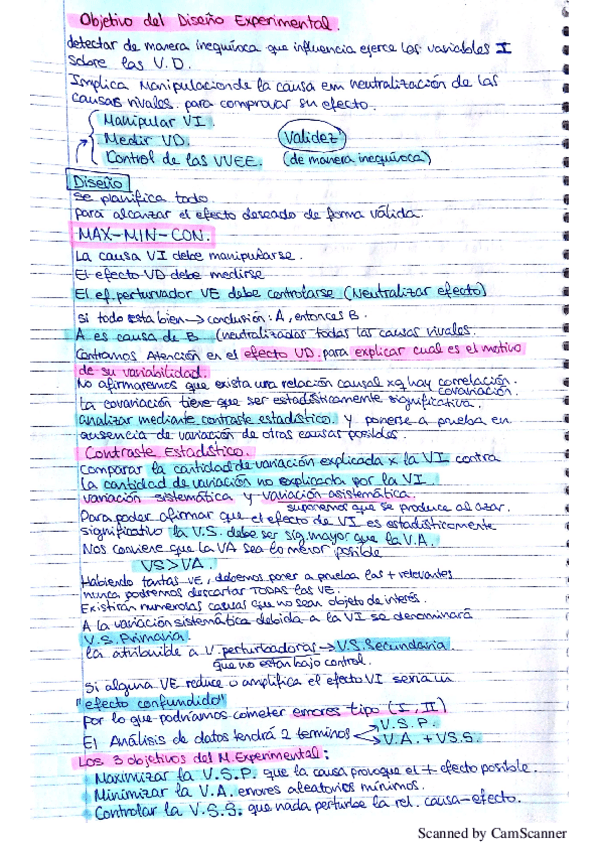 Objetivo del Diseño Experimental.
detectar de manera inequívoca que influencia ejerce las variables I
sobre las V.D.
Implica Manipulacion de la causa em neutralización de las
causas rivales. para comprovar su efecto.
Manipular VI.
Medir VD. Validez
Control de las VVEE. (de manera inequívoca)
Diseño
se planifica todo
para alcanzar el efecto deseado de forma válida.
MAX-MIN-CON.
La causa VI debe manipularse.
El efecto VD debe medirse
El ef. perturvador VE debe controlarse (Neutralizar efecto)
si todo esta bien → conclusión: A, entonces B.
A es causa de B (neutralizadas todas las causas rivales.
Centramos Atención en el efecto VD. para explicar cual es el motivo
de su variabilidad.
No afirmaremos que exista una relación causal xq hay correlación.
covariación.
La covariación tiene que ser estadísticamente significativa.
analizar mediante contraste estadístico. y ponerse a prueba en
ausencia de variación de otras causas posibles.
Contraste Estadístico.
comparar la cantidad de variación explicada x la VI contra
la cantidad de variación no explicada por la VI
variación sistemática y variación asistemática.
suponemos que se produce al azar.
Para poder afirmar que el efecto de VI es estadísticamente
significativo la V.S. debe ser sig. mayor que la V.A.
Nos conviene que la VA sea lo menor posible
VS>VA.
Habiendo tantas VE, debemos poner a prueba las + relevantes
nunca podremos descartar TODAS las VE.
Existirán numerosas causas que no sean objeto de interés.
A la variación sistemática debida a la VI se denominará
V.S. Primaria.
la atribuible a V. perturbadoras → V.S. Secundaria.
que no están bajo control.
Si alguna VE reduce o amplifica el efecto VI sería un
"efecto confundido"
por lo que podríamos cometer errores tipo (I, II)
V.S.P.
El Análisis de datos tendrá 2 terminos
V.A. + VS.S.
Los 3 objetivos del M. Experimental:
Maximizar la V.S.P. que la causa provoque el + efecto posible.
Minimizar la V.A. errores aleatorios mínimos.
Controlar la V.S.S. que nada perturbe la rel. causa-efecto.
Scanned by CamScanner